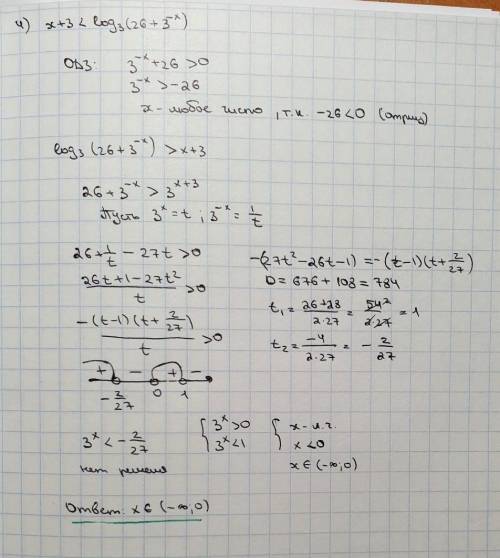 4) x+3 < log₃(26+3⁻ˣ)
ОДЗ: 3⁻ˣ+26 >0
3⁻ˣ >-26
x - любое число, т.к. -26<0 (отриц)
log₃(26+3⁻ˣ) > x+3
26+3⁻ˣ > 3ˣ⁺³
Пусть 3ˣ = t ; 3⁻ˣ = 1/t
26+1/t - 27t >0
(26t+1-27t²)/t >0
(-(t-1)(t+2/27))/t >0
-(27t²-26t-1) = -(t-1)(t+2/27)
D = 676 + 108 = 784
t₁ = (26+28)/(2·27) = 54²/(2·27) = 1
t₂ = -4/(2·27) = -2/27
+ - + -
-2/27 0 1
3ˣ < -2/27
нет решен
{ 3ˣ>0
3ˣ<1
{ x - л.ч.
x <0
x ∈ (-∞;0)
Ответ: x ∈ (-∞;0)